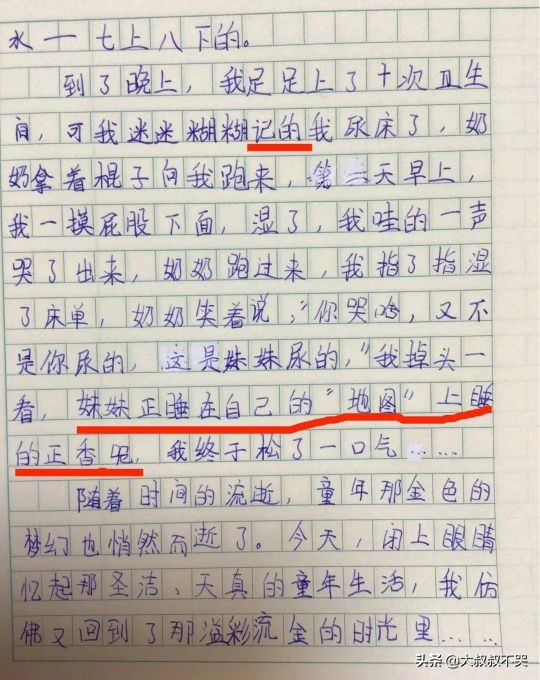 水一七上八下的。
到了晚上，我足足上了十次卫生
间，可我迷迷糊糊记的我尿床了，奶
奶拿着棍子向我跑来，第二天早上，
我一摸屁股下面，湿了，我哇的一声
哭了出来，奶奶跑过来，我指了指湿
了床单，奶奶笑着说："你哭啥，又不
是你尿的，这是妹妹尿的，"我掉头一
看，妹妹正睡在自己的"地图"上睡
的正香呢，我终于松了一口气……
随着时间的流逝，童年那金色的
梦幻也悄然而逝了。今天，闭上眼睛
忆起那圣洁、天真的童年生活，我仿
佛又回到了那溢彩流金的时光里……
头条 @大叔叔不哭